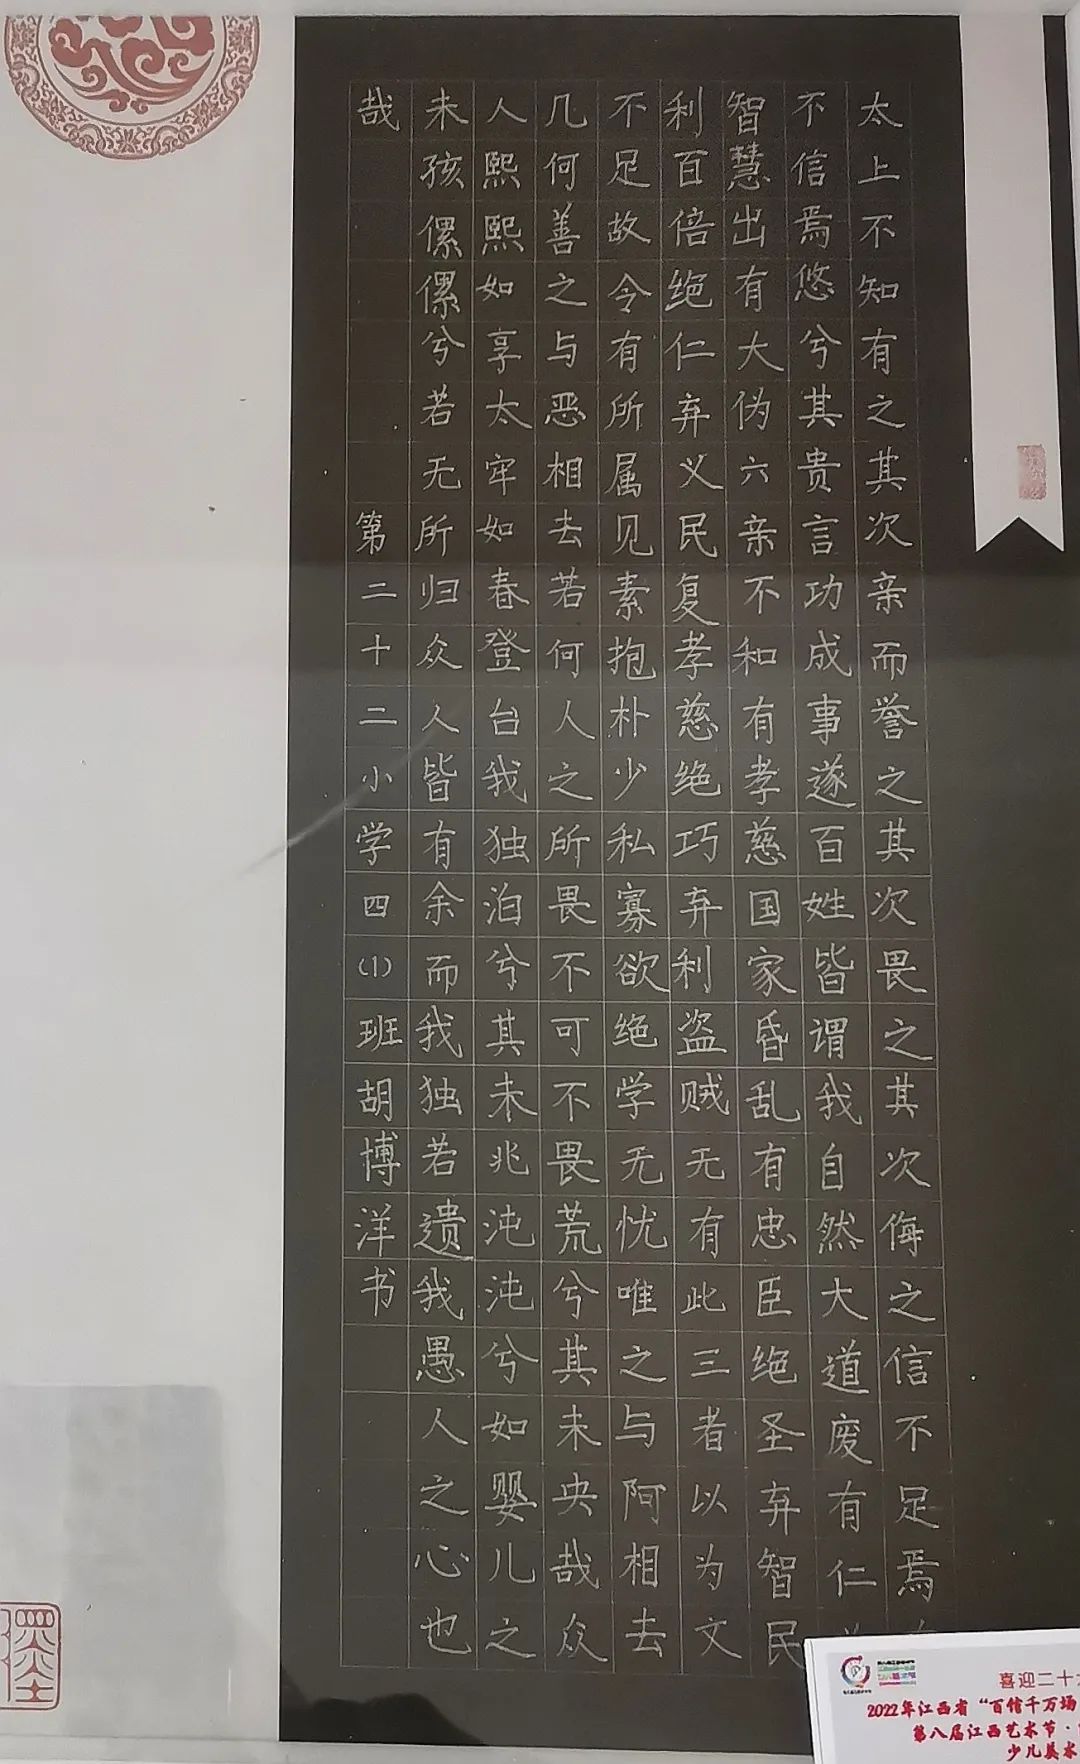 太上不知有之其次亲而誉之其次畏之其次侮之信不足焉
不信焉悠兮其贵言功成事遂百姓皆谓我自然大道废有仁
智慧出有大伪六亲不和有孝慈国家昏乱有忠臣绝圣弃智民
利百倍绝仁弃义民复孝慈绝巧弃利盗贼无有此三者以为文
不足故令有所属见素抱朴少私寡欲绝学无忧唯之与阿相去
几何善之与恶相去若何人之所畏不可不畏荒兮其未央哉众
人熙熙如享太牢如春登台我独泊兮其未兆沌沌兮如婴儿之
未孩傫傫兮若无所归众人皆有余而我独若遗我愚人之心也
哉 第二十二小学四(1)班胡博洋书
喜迎二十
2022年江西省“百馆千万场
第八届江西艺术节·
少儿美